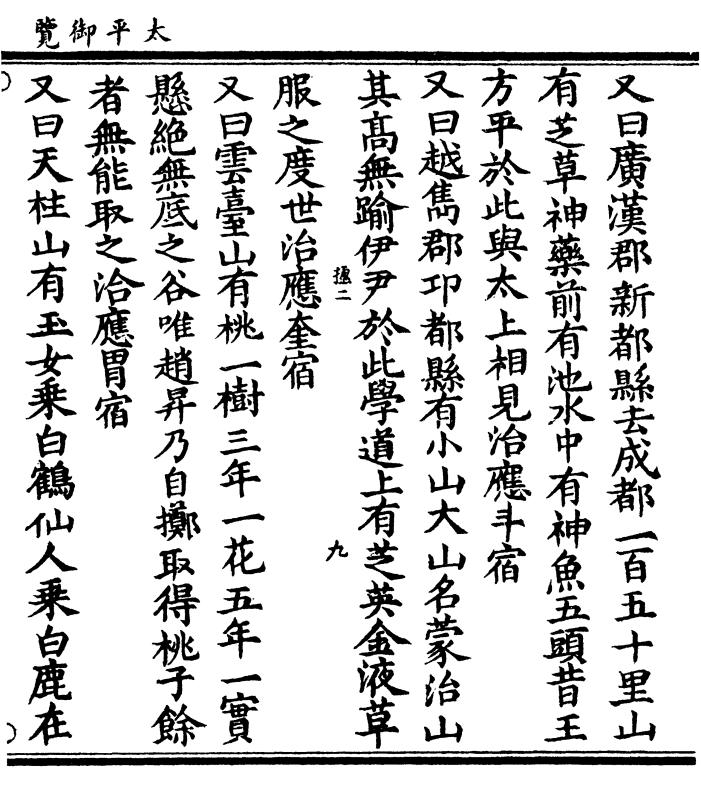 太平御覽
又曰廣漢郡新都縣去成都一百五十里山
有芝草神藥前有池水中有神魚五頭昔王
方平於此與太上相見治應斗宿
又曰越雋郡邛都縣有小山大山名蒙治山
其髙無踰伊尹於此學道上有芝英金液草
九
服之度世治應奎宿
又曰雲臺山有桃一樹三年一花五年一實
懸絶無底之谷唯趙昇乃自擲取得桃子餘
者無能取之治應胃宿
又曰天柱山有玉女乗白鶴仙人乗白鹿在